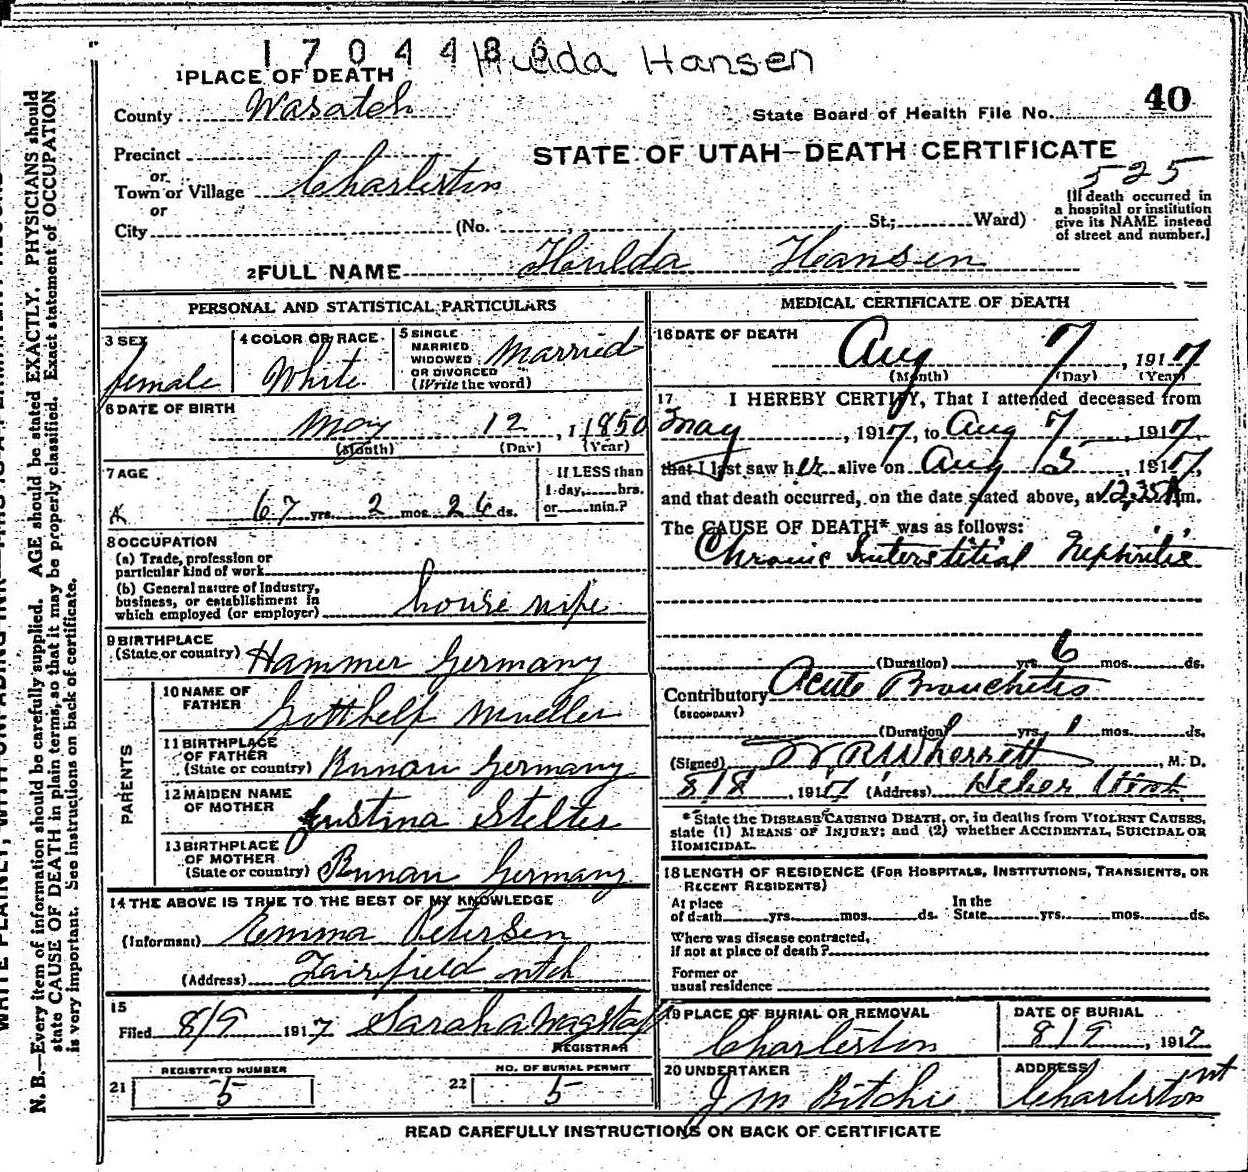 1704486 Hulda Hansen
1 PLACE OF DEATH
County Wasatch
State Board of Health File No. 40
Precinct
or
STATE OF UTAH—DEATH CERTIFICATE
525
Town or Village Charleston
or
City (No. St.; Ward)
[If death occurred in
a hospital or institution
give its NAME instead
of street and number.]
2 FULL NAME Hulda Hansen
PERSONAL AND STATISTICAL PARTICULARS
3 SEX
female
4 COLOR OR RACE
White
5 SINGLE
MARRIED
WIDOWED
OR DIVORCED
(Write the word)
Married
6 DATE OF BIRTH
May 12, 1 1850
(Month) (Day) (Year)
7 AGE
67 yrs. 2 mos. 26 ds.
If LESS than
1 day, hrs.
or min.?
8 OCCUPATION
(a) Trade, profession or
particular kind of work
(b) General nature of Industry,
business, or establishment in
which employed (or employer) house wife
9 BIRTHPLACE
(State or country) Hammer Germany
PARENTS
10 NAME OF
FATHER Gotthelf Mueller
11 BIRTHPLACE
OF FATHER
(State or country) Runau Germany
12 MAIDEN NAME
OF MOTHER Justina Stelter
13 BIRTHPLACE
OF MOTHER
(State or country) Runau Germany
14 THE ABOVE IS TRUE TO THE BEST OF MY KNOWLEDGE
(Informant) Emma Petersen
(Address) Fairfield utah
15
Filed 8/9 1917 Sarah A Wagstaff
REGISTRAR
21 REGISTERED NUMBER
5
22 NO. OF BURIAL PERMIT
5
MEDICAL CERTIFICATE OF DEATH
16 DATE OF DEATH
Aug 7, 1917
(Month) (Day) (Year)
17 I HEREBY CERTIFY, That I attended deceased from
May, 1917, to Aug 7, 1917,
that I last saw her alive on Aug 5, 1917,
and that death occurred, on the date stated above, at 12.35 A m.
The CAUSE OF DEATH* was as follows:
Chronic Interstitial Nephritis
(Duration) yrs. 6 mos. ds.
Contributory Acute Bronchitis
(SECONDARY)
(Duration) yrs. 1 mos. ds.
(Signed) W R Wherritt, M. D.
8/8, 1917 (Address) Heber Utah
* State the DISEASE CAUSING DEATH, or, in deaths from VIOLENT CAUSES,
state (1) MEANS OF INJURY; and (2) whether ACCIDENTAL, SUICIDAL OR
HOMICIDAL.
18 LENGTH OF RESIDENCE (FOR HOSPITALS, INSTITUTIONS, TRANSIENTS, OR
RECENT RESIDENTS)
At place
of death yrs. mos. ds.
In the
State yrs. mos. ds.
Where was disease contracted,
if not at place of death?
Former or
usual residence
19 PLACE OF BURIAL OR REMOVAL
Charleston
DATE OF BURIAL
8/9, 1917
20 UNDERTAKER
J M Ritchie
ADDRESS
Charleston ut
READ CAREFULLY INSTRUCTIONS ON BACK OF CERTIFICATE
N. B.—Every item of information should be carefully supplied. AGE should be stated EXACTLY. PHYSICIANS should
state CAUSE OF DEATH in plain terms, so that it may be properly classified. Exact statement of OCCUPATION
is very important. See instructions on back of certificate.